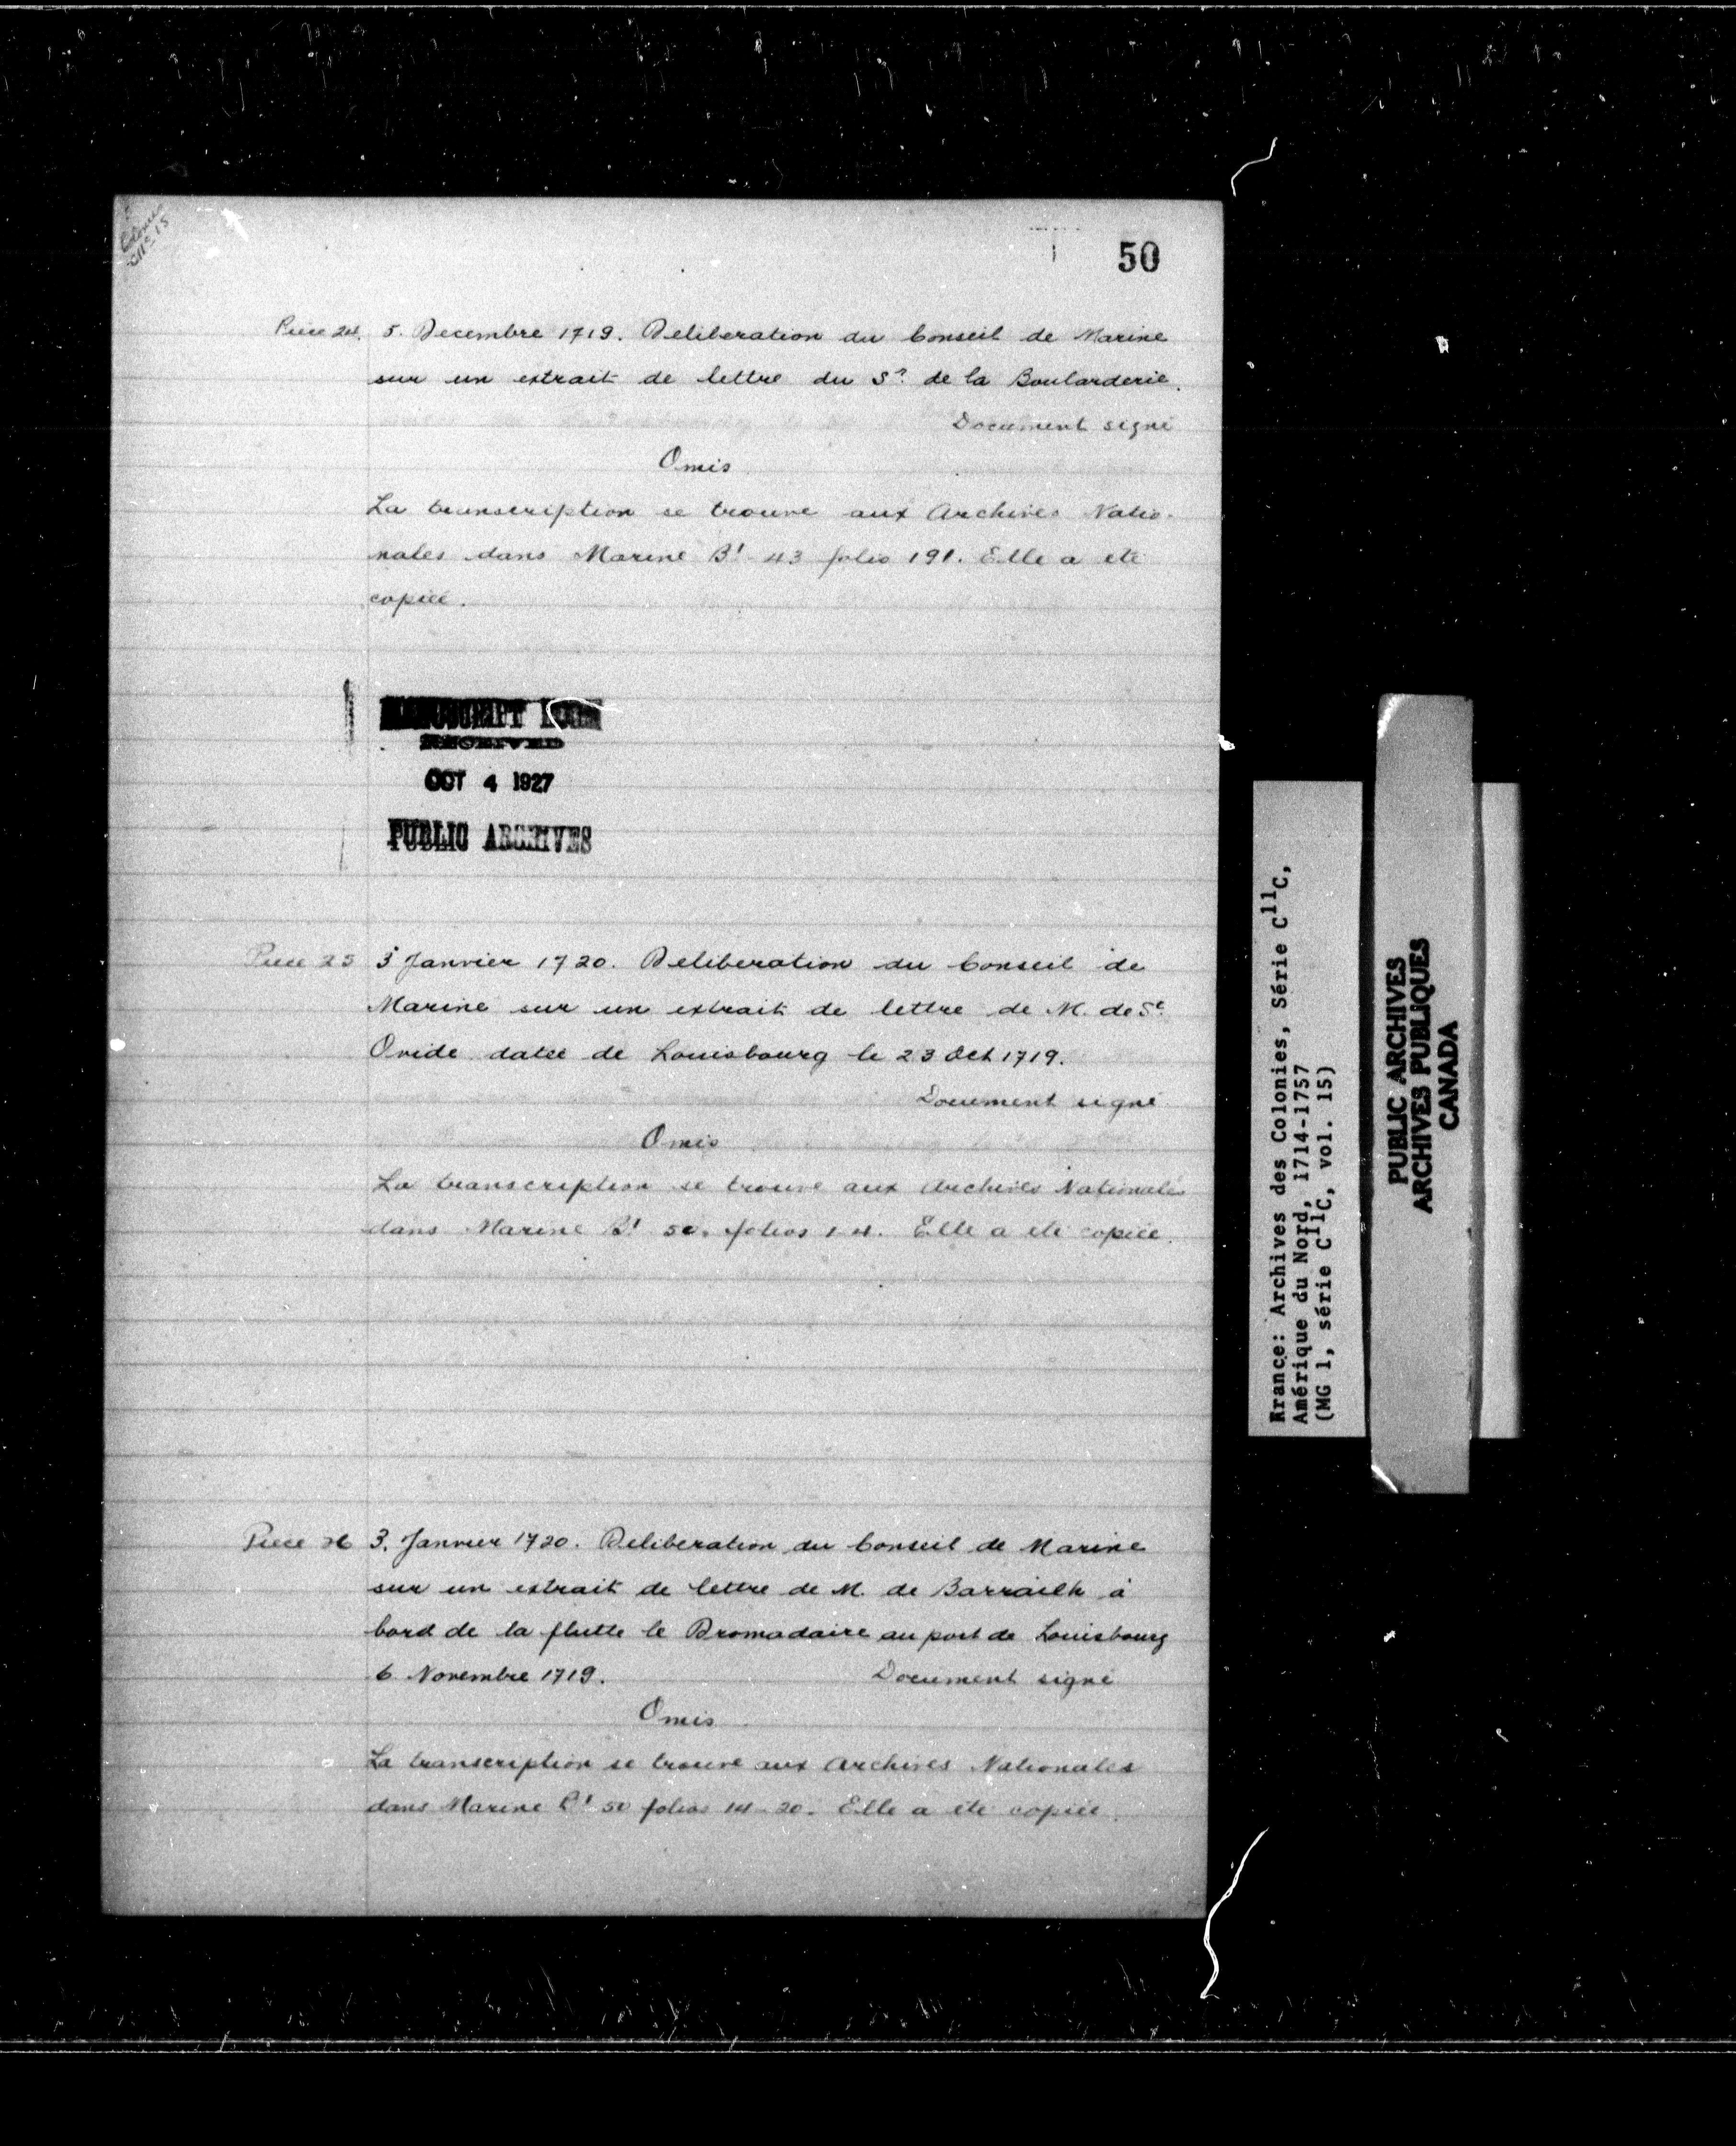 Colonies
C11c 15
50
Piece 24. 5. Decembre 1719. Deliberation du Conseil de Marine
sur un extrait de lettre du Sr. de la Boularderie.
Document signé
Omis
La transcription se trouve aux Archives Natio-
nales dans Marine B1 43 folio 191. Elle a été
copiée.
MANUSCRIPT ROOM
RECEIVED
OCT 4 1927
PUBLIC ARCHIVES
Piece 25 3 Janvier 1720. Deliberation du Conseil de
Marine sur un extrait de lettre de M. de St.
Ovide datée de Louisbourg le 23 Oct 1719.
Document signé
Omis
La transcription se trouve aux Archives Nationales
dans Marine B1 50. folios 1-4. Elle a été copiée.
Piece 26 3. Janvier 1720. Deliberation du Conseil de Marine
sur un extrait de lettre de M. de Barrailh à
bord de la flutte le Dromadaire au port de Louisbourg
6 Novembre 1719. Document signé
Omis
La transcription se trouve aux Archives Nationales
dans Marine B1 50 folios 14-20. Elle a été copiée.
France: Archives des Colonies, Série C11C,
Amérique du Nord, 1714-1757
(MG 1, série C11C, vol. 15)
PUBLIC ARCHIVES
ARCHIVES PUBLIQUES
CANADA